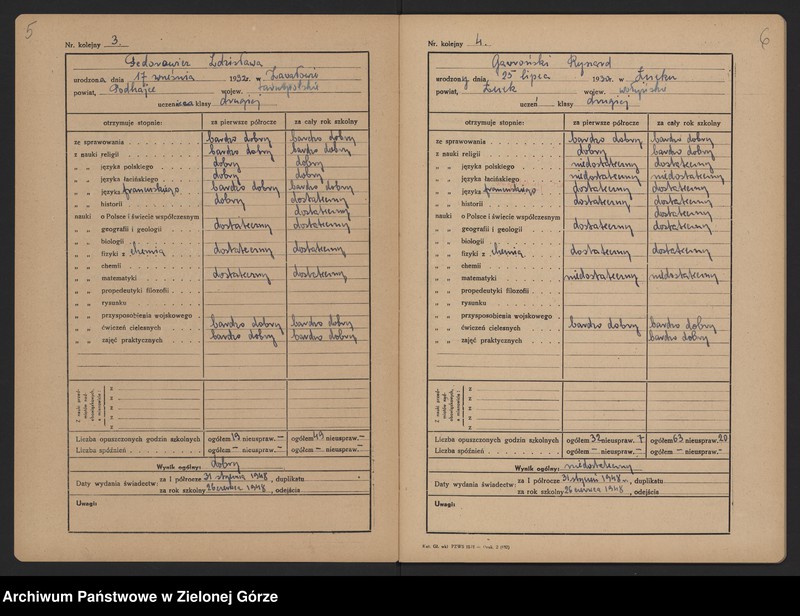 5
Nr. kolejny 3.
Fedorowicz Zdzisława
urodzona, dnia 17 września 1932 r. w Zawałowie
powiat, Podhajce wojew. tarnopolskie
uczenica klasy drugiej
otrzymuje stopnie: za pierwsze półrocze za cały rok szkolny
ze sprawowania bardzo dobry bardzo dobry
z nauki religii bardzo dobry bardzo dobry
„ „ języka polskiego dobry dobry
„ „ języka łacińskiego dobry dobry
„ „ języka francuskiego bardzo dobry bardzo dobry
„ „ historii dobry dostateczny
nauki o Polsce i świecie współczesnym dostateczny
„ „ geografii i geologii dostateczny dostateczny
„ „ biologii
„ „ fizyki z chemią dostateczny dostateczny
„ „ chemii
„ „ matematyki dostateczny dostateczny
„ „ propedeutyki filozofii
„ „ rysunku
„ „ przysposobienia wojskowego
„ „ ćwiczeń cielesnych bardzo dobry bardzo dobry
„ „ zajęć praktycznych bardzo dobry bardzo dobry
Liczba opuszczonych godzin szkolnych ogółem 19 nieuspraw. — ogółem 49 nieuspraw. —
Liczba spóźnień ogółem — nieuspraw. — ogółem — nieuspraw. —
Wynik ogólny: dobry
Daty wydania świadectw: za I półrocze 31 stycznia 1948, duplikatu
za rok szkolny 26 czerwca 1948, odejścia
Uwagi:
6
Nr. kolejny 4.
Gawroński Ryszard
urodzony, dnia 25 lipca 1930 r. w Łucku
powiat, Łuck wojew. wołyńskie
uczeń klasy drugiej
otrzymuje stopnie: za pierwsze półrocze za cały rok szkolny
ze sprawowania bardzo dobry bardzo dobry
z nauki religii dobry bardzo dobry
„ „ języka polskiego niedostateczny dostateczny
„ „ języka łacińskiego niedostateczny niedostateczny
„ „ języka francuskiego dostateczny dostateczny
„ „ historii dostateczny dostateczny
nauki o Polsce i świecie współczesnym dostateczny
„ „ geografii i geologii dostateczny dostateczny
„ „ biologii
„ „ fizyki z chemią dostateczny dostateczny
„ „ chemii
„ „ matematyki niedostateczny niedostateczny
„ „ propedeutyki filozofii
„ „ rysunku
„ „ przysposobienia wojskowego
„ „ ćwiczeń cielesnych bardzo dobry bardzo dobry
„ „ zajęć praktycznych bardzo dobry
Liczba opuszczonych godzin szkolnych ogółem 32 nieuspraw. 7 ogółem 63 nieuspraw. 20
Liczba spóźnień ogółem — nieuspraw. — ogółem — nieuspraw. —
Wynik ogólny: niedostateczny
Daty wydania świadectw: za I półrocze 31 styczeń 1948 r., duplikatu
za rok szkolny 26 czerwca 1948, odejścia
Uwagi:
Archiwum Państwowe w Zielonej Górze